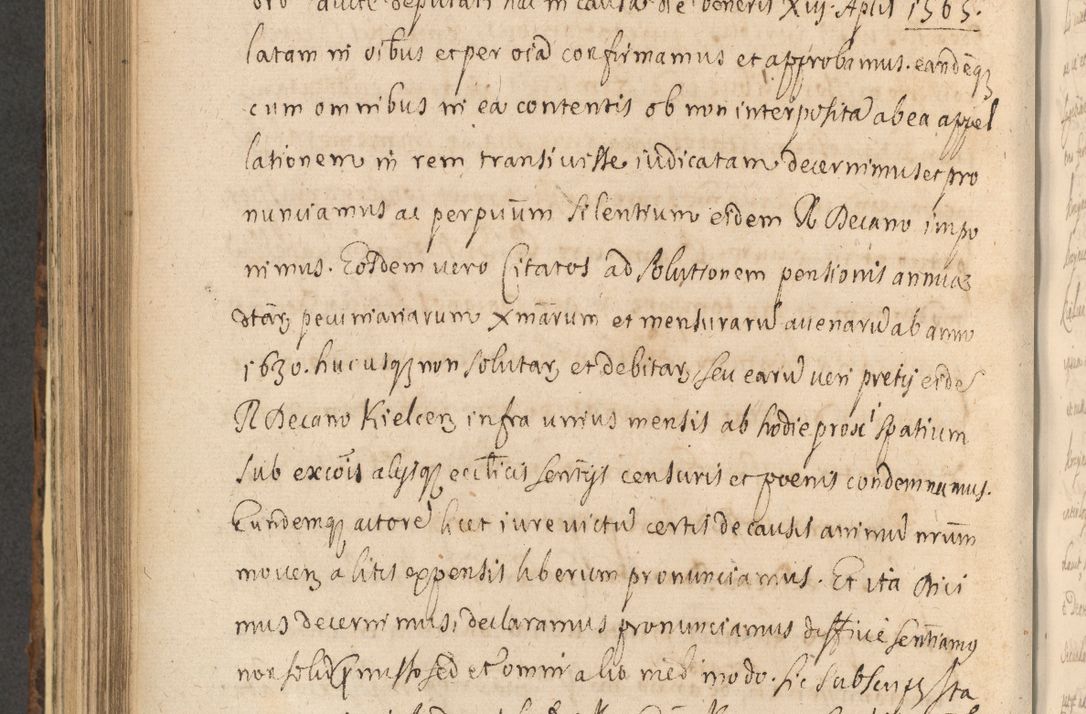 dcte deputati hac in causa die Veneris XIII Aplis 1565.
latam in oibus et per oia confirmamus et approbamus. eandeq3
cum omnibus in ea contentis ob non interposita ab ea appel
lationem in rem transivisse iudicatam decernimus et pro
nunciamus ac perpuum silentium eidem R Decano impo
nimus. Eosdem vero Citatos ad solutionem pensionis annuae
dtar3 pecuniariarum Xmarum et mensuraru avenaru ab anno
1630. hucusq3 non solutar3 et debitar3 seu earu veri pretij eide
R Decano Kielcen3 infra unius mensis ab hodie proxi spatium
sub excois alijsq3 ecclicis sentijs censuris et poenis condemnamus.
Eundemq3 actore licet iure victu certis de causis animu nrum
moven3 a litis expensis liberum pronunciamus. Et ita dici
mus decernimus, declaramus pronunciamus diffive sentiamus
non solu pmisso sed et omni alio med modo. sic subscrip3 Sta